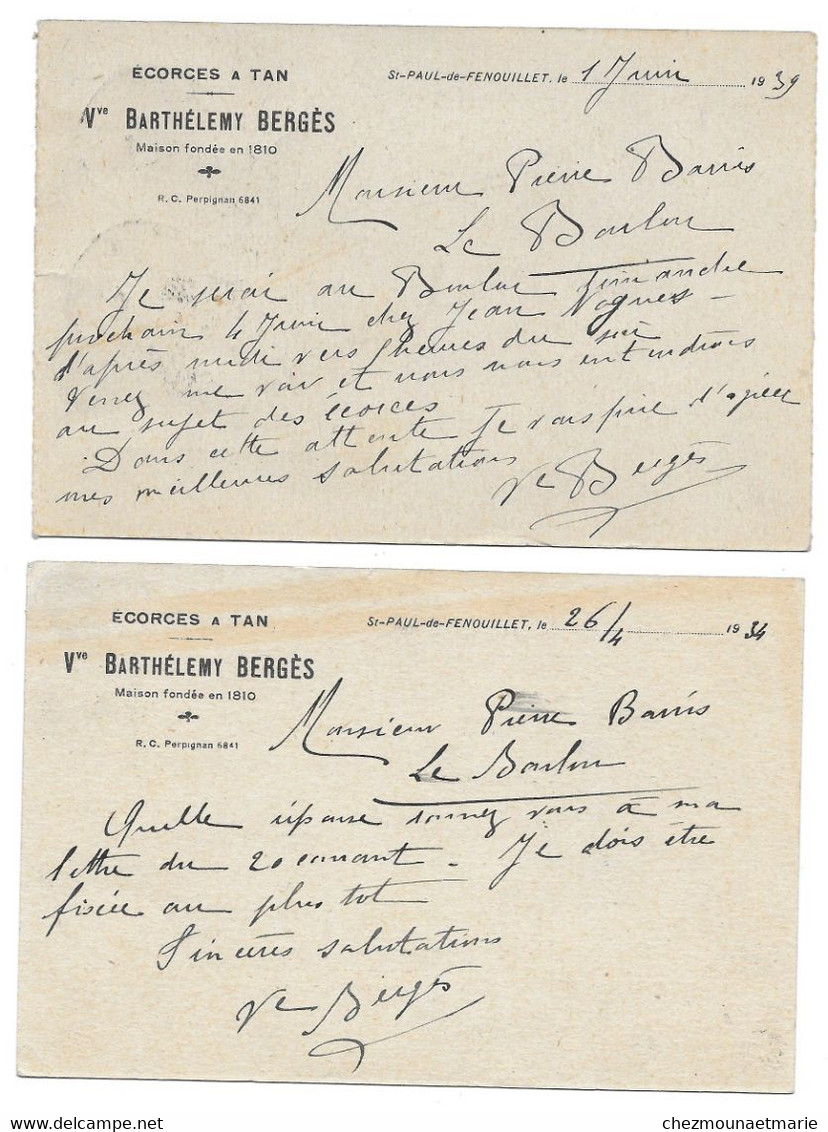 ÉCORCES A TAN
St-PAUL-de-FENOUILLET, le 1 Juin 1939
Vve BARTHÉLEMY BERGÈS
Maison fondée en 1810
R. C. Perpignan 6841
Monsieur Pierre Barris
Le Boulou
Je serai au Boulou dimanche
prochain 4 Juin chez Jean Nogues -
d'après midi vers heures du soir
Venez me voir et nous nous entendrons
au sujet des écorces
Dans cette attente Je vous prie d'agréer
mes meilleures salutations
Ve Bergès
ÉCORCES A TAN
St-PAUL-de-FENOUILLET, le 26/4 1934
Vve BARTHÉLEMY BERGÈS
Maison fondée en 1810
R. C. Perpignan 6841
Monsieur Pierre Barris
Le Boulou
Quelle réponse donnez vous à ma
lettre du 20 courant - Je dois être
fixée au plus tot
Sincères salutations
Ve Bergès
chezmounaetmarie